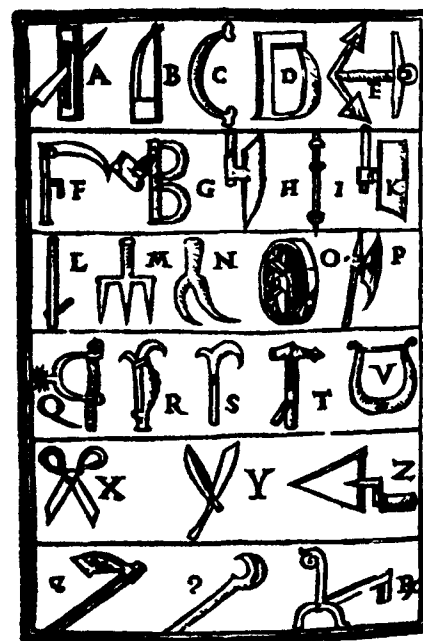 A B C D E
F G H I K
L M N O P
Q R S T V
X Y Z